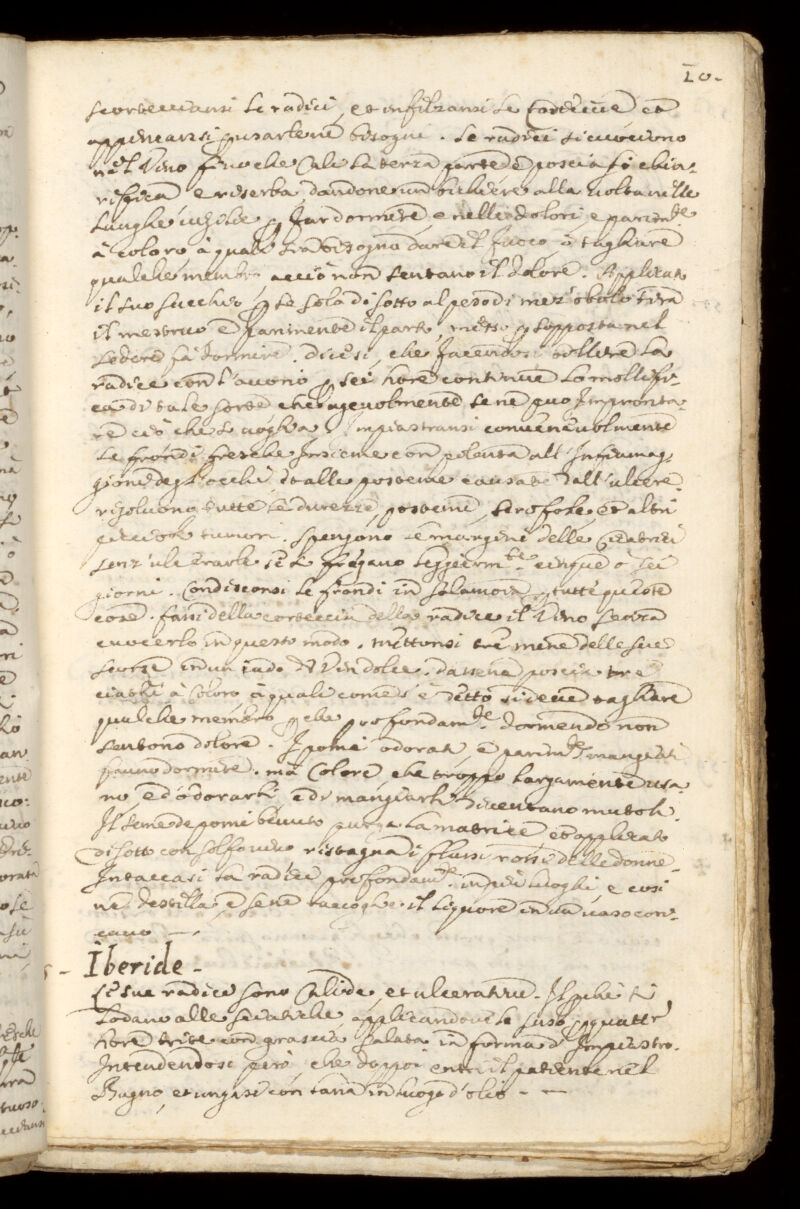 10.
Scortecciansi le radici, et infilzansi le corteccie et
appiccansi p usarle ne bisogni. Le radici si cuocono
nel Vino fin che cali la terza parte e poscia si chia-
rifica e riserba, dandone un bichiere alla uolta nelle
lunghe uigilie p far dormire, e nelli dolori, e parim.te
à coloro à quali sia bisogno dare il fuoco, ò tagliare
qualche membro acciò non sentano il dolore. Applicato
il suo succhio p se solo di sotto al peso di mez' obolo tira
il mestruo e parimente il parto, messo p sopposta nel
sedere fà dormire. Dicesi, che facendosi bollire la
radice con l'auorio p sei hore continue lo mollifi-
ca di tale sorte che ageuolmente se ne può impronta-
re ciò che si uoglia. Impiastransi conueneuolmente
le frondi fresche insieme con polenta all' infiamag-
gioni degl'occhi et alle posteme causate dall'ulcere
risoluono tutte le durezze, posteme, scrofole, et altri
tumori. Spengono le margini delle Cicatrici
senz'ulcerarle se si fregano leggierm.te cinque ò sei
giorni. Condisconsi le frondi in salamoia p tutte queste
cose. Fassi della corteccia della radice il Vino senza
cuocerlo in questo modo. mettonsi tre mine delle sue
scorze in un cado di Vin dolce. dassene poscia tre
ciathi à coloro à quali come s'è detto si deue tagliare
qualche membro p che profondam.te dormendo non
sentono dolore. I pomi odorati, e parim.te mangiati
fanno dormire. mà coloro che troppo largamente usa-
no, ed odorarli, e di mangiarli diuentano mutoli.
Il seme de pomi beuuto purga la matrice et applicato
di sotto con solfo uiuo ristagna i flussi rossi delle donne.
Intaccasi la radice profondam.te in più luoghi, e così
ne destilla e se ne raccoglie il liquore in un uaso con-
cauo —.
- Iberide -
Le sue radice sono Calide, et ulceratiue. Il perche si
lodano alle sciatiche applicandouele suso p quattr'
hore trite con grascia salata in forma d'Impiastro.
Intendendosi però, che doppo entri il patiente nel
Bagno, et ungasi con lana in luogo d'olio - —